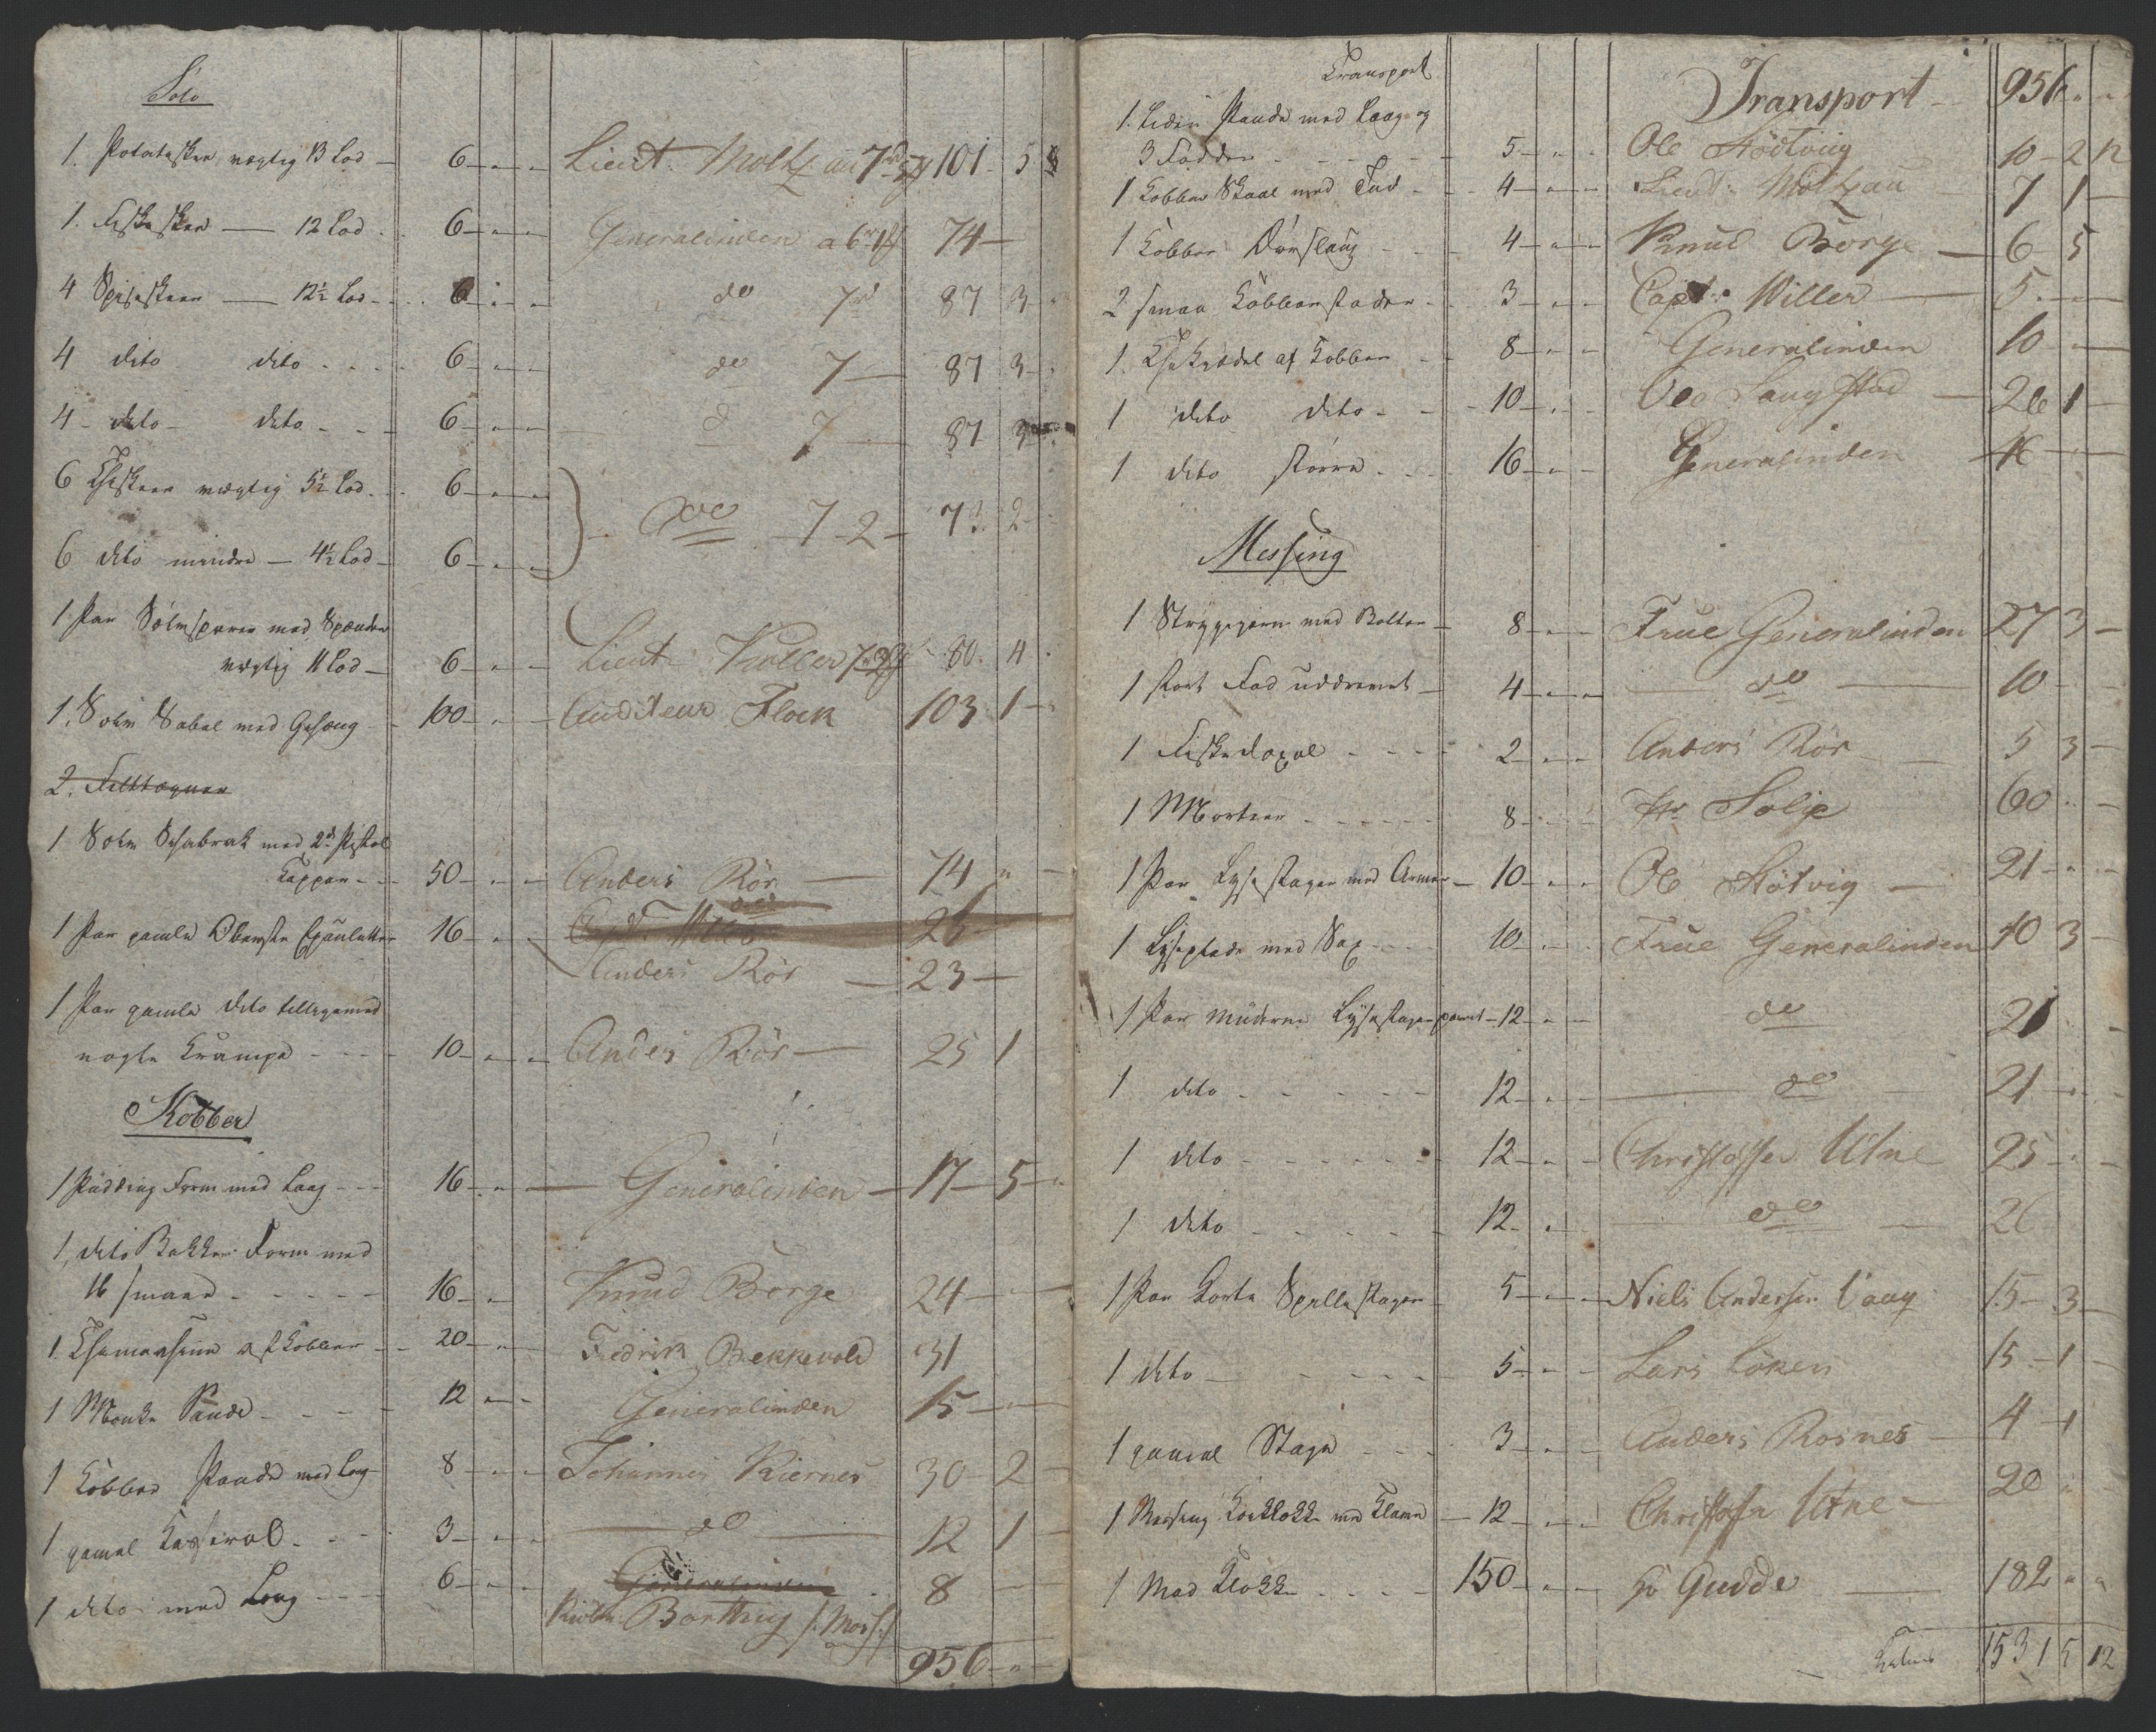 Sølv
1. Potateskee vægtig 13 Lod — 6 — Lieut. Moltzau 7 rd 101. 5
1. Fiskeskee — 12 Lod. 6 — Generalinden a 6 74 —
4 Spiseskeer — 12½ Lod — 6 — do 7 rd 87 3
4 dito dito . . . . 6 — do 7 — 87 3
4 dito dito . . . 6 — d 7 — 87 3
6 Theskeer vægtig 5½ Lod. 6 —
do 7 - 2 — 73. 2
6 dito mindre — 4½ Lod — 6 —
1 Par Sølvsporer med Spænder
vægtig 11 Lod — 6 — Lieut. 80. 4
1. Sølv Sabel med Gehæng — 100 — Auditeur Flock 103 1 —
2. Felttegner
1 Sølv Schabrak med 2de Pistol
Kapper — 50 — Anders Rör — 74 „ —
1 Par gamle Oberste Epauletter 16 — 26
Anders Rör — 23 —
1 Par gamle dito tilligemed
nogle Krampe — 10 — Anders Rör — 25 1
Kobber
1 Pudding Form med Laag — 16 — Generalinden — 17 — 5 —
1, dito Bakkels Form med
16 smaae — 16 — Knud Borge 24 —
1. Themaskine af Kobber — 20 — Fredrik Bekkevold 31
1 Munke Pande — 12 — Generalinden 15 —
1 Kobber Pande med Laag 8 — Johannes Kiernes 30 2
1 gamel Kasserol — 3 — do — 12 1
1 dito med Laag — 6 — Generalinden 8 —
Barthug /: Moss :/
956 — „ —
Transport
Transport — 956 „ „
1. Liden Pande med Laag og
3 Födder — 5 — Ole Stödtviig 10 — 2 12
1 Kobber Skaal med Tud — 4 — Lieut. Moltzau 7 1 —
1 Kobber Dørslaug — 4 — Knud Borge — 6 — 5
2 smaa Kobberstader — 3 — Capt. Willer — 5 —
1. Thekiedel af Kobber — 8 — Generalinden 10 —
1 dito dito — 10 — Ole Langstad — 26 1 —
1 dito större — 16 — Generalinden 16 —
Messing
1 Strygejern med Bolter — 8 — Frue Generalinden 27 3 —
1 stort Fad uddrevet — 4 — do — 10 —
1 Fiskeloxel — 2 — Anders Rör 5 3 —
1 Morteer — 8 — Hr Solie 60 —
1 Par Lysestager med Armer — 10 — Ole Stötvig — 21 —
1 Lyseplade med Sax — 10 — Frue Generalinden 10 3 —
1 Par moderne Lysestager parret — 12 — do 21 —
1 dito — 12 — do 21 —
1 dito — 12 — Christoffer Utne 25 —
1 dito — 12 — do 26
1 Par korte Spillestager 5 — Niels Andersen Vaag 15 — 3 —
1 dito — 5 — Lars Löken 15 — 1 —
1 gamel Stage — 3 — Anders Rosnes — 4 — 1
1 Messing med — 12 — Christoffer Utne — 20
1 Klokke — 150 — Gudde — 182 „ „
1531 5 12